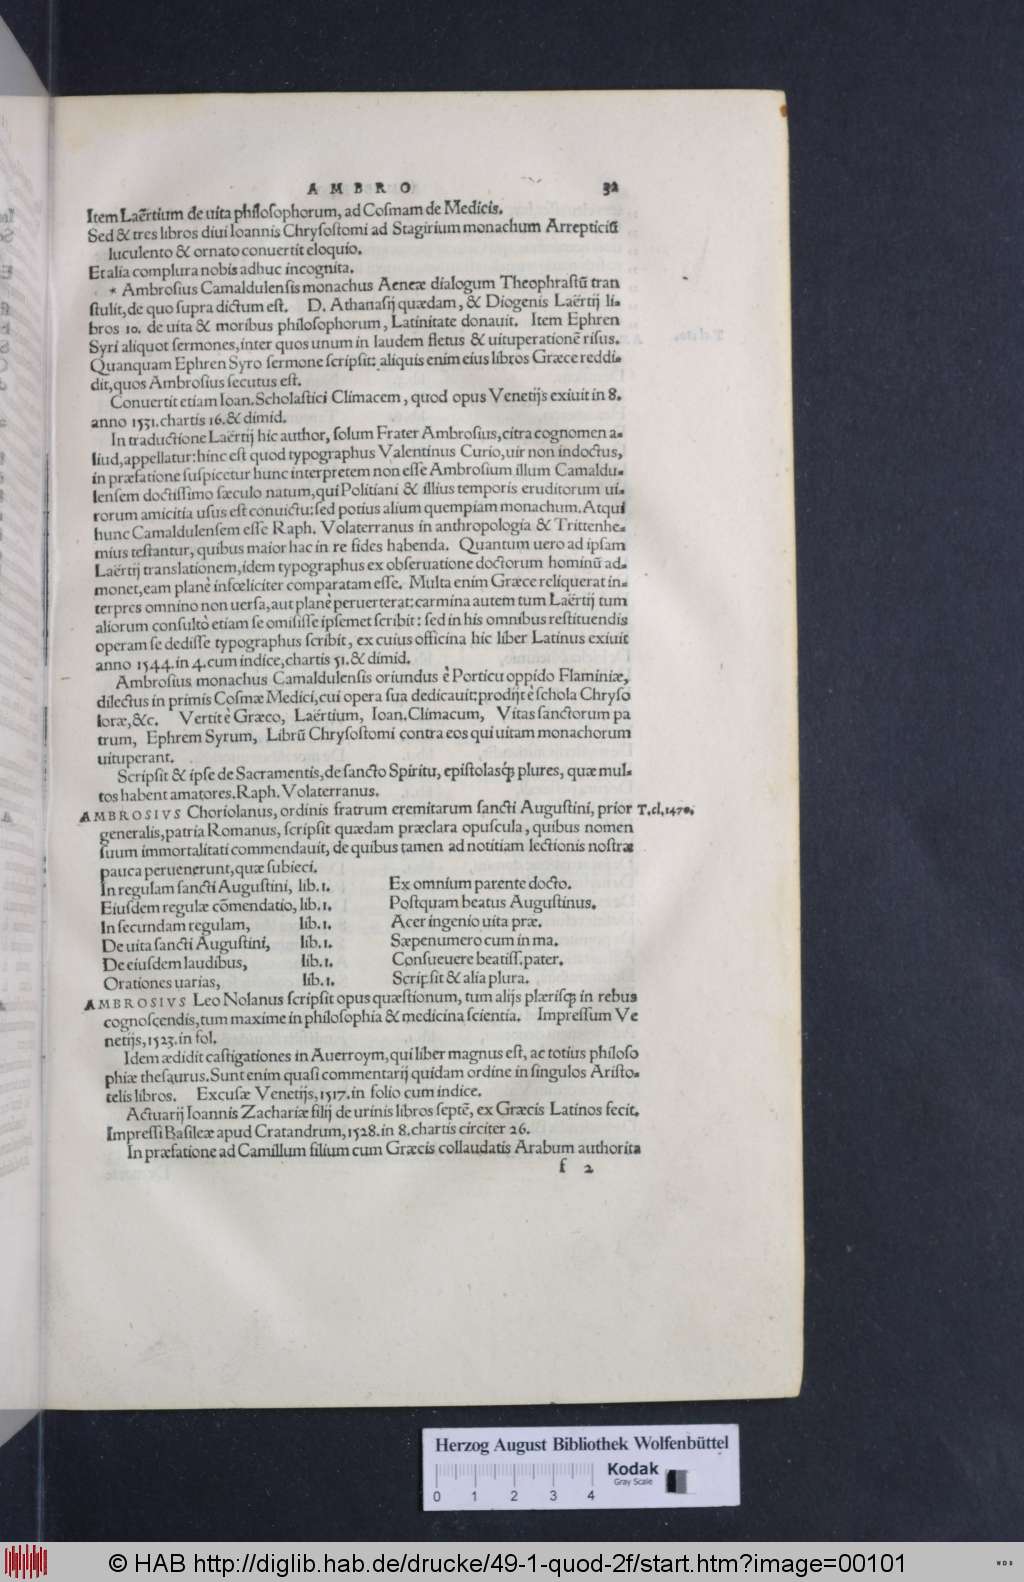 AMBRO 32
Item Laërtium de uita philosophorum, ad Cosmam de Medicis.
Sed & tres libros diui Ioannis Chrysostomi ad Stagirium monachum Arrepticiũ
luculento & ornato conuertit eloquio.
Et alia complura nobis adhuc incognita.
* Ambrosius Camaldulensis monachus Aeneæ dialogum Theophrastũ tran
stulit, de quo supra dictum est. D. Athanasij quædam, & Diogenis Laërtij li-
bros 10. de uita & moribus philosophorum, Latinitate donauit. Item Ephren
Syri aliquot sermones, inter quos unum in laudem fletus & uituperationẽ risus.
Quanquam Ephren Syro sermone scripsit: aliquis enim eius libros Græce reddi-
dit, quos Ambrosius secutus est.
Conuertit etiam Ioan. Scholastici Climacem, quod opus Venetijs exiuit in 8.
anno 1531. chartis 16. & dimid.
In traductione Laërtij hic author, solum Frater Ambrosius, citra cognomen a-
liud, appellatur: hinc est quod typographus Valentinus Curio, uir non indoctus,
in præfatione suspicetur hunc interpretem non esse Ambrosium illum Camaldu-
lensem doctissimo sæculo natum, qui Politiani & illius temporis eruditorum ui-
rorum amicitia usus est conuictu: sed potius alium quempiam monachum. Atqui
hunc Camaldulensem esse Raph. Volaterranus in anthropologia & Trittenhe-
mius testantur, quibus maior hac in re fides habenda. Quantum uero ad ipsam
Laërtij translationem, idem typographus ex obseruatione doctorum hominũ ad-
monet, eam planè infœliciter comparatam esse. Multa enim Græce reliquerat in-
terpres omnino non uersa, aut planè peruerterat: carmina autem tum Laërtij tum
aliorum consultò etiam se omisisse ipsemet scribit: sed in his omnibus restituendis
operam se dedisse typographus scribit, ex cuius officina hic liber Latinus exiuit
anno 1544. in 4. cum indice, chartis 51. & dimid.
Ambrosius monachus Camaldulensis oriundus è Porticu oppido Flaminiæ,
dilectus in primis Cosmæ Medici, cui opera sua dedicauit: prodijt è schola Chryso
loræ, &c. Vertit è Græco, Laërtium, Ioan. Climacum, Vitas sanctorum pa
trum, Ephrem Syrum, Librũ Chrysostomi contra eos qui uitam monachorum
uituperant.
Scripsit & ipse de Sacramentis, de sancto Spiritu, epistolasq́; plures, quæ mul-
tos habent amatores. Raph. Volaterranus.
AMBROSIVS Choriolanus, ordinis fratrum eremitarum sancti Augustini, prior T. cl. 1470.
generalis, patria Romanus, scripsit quædam præclara opuscula, quibus nomen
suum immortalitati commendauit, de quibus tamen ad notitiam lectionis nostræ
pauca peruenerunt, quæ subieci.
In regulam sancti Augustini, lib. 1. Ex omnium parente docto.
Eiusdem regulæ cõmendatio, lib. 1. Postquam beatus Augustinus.
In secundam regulam, lib. 1. Acer ingenio uita præ.
De uita sancti Augustini, lib. 1. Sæpenumero cum in ma.
De eiusdem laudibus, lib. 1. Consueuere beatiss. pater.
Orationes uarias, lib. 1. Scripsit & alia plura.
AMBROSIVS Leo Nolanus scripsit opus quæstionum, tum alijs plærisq́; in rebus
cognoscendis, tum maxime in philosophia & medicina scientia. Impressum Ve
netijs, 1523. in fol.
Idem ædidit castigationes in Auerroym, qui liber magnus est, ac totius philoso
phiæ thesaurus. Sunt enim quasi commentarij quidam ordine in singulos Aristo-
telis libros. Excusæ Venetijs, 1517. in folio cum indice.
Actuarij Ioannis Zachariæ filij de urinis libros septẽ, ex Græcis Latinos fecit.
Impressi Basileæ apud Cratandrum, 1528. in 8. chartis circiter 26.
In præfatione ad Camillum filium cum Græcis collaudatis Arabum authorita
f 2
Herzog August Bibliothek Wolfenbüttel
Kodak
Gray Scale
0 1 2 3 4
© HAB http://diglib.hab.de/drucke/49-1-quod-2f/start.htm?image=00101